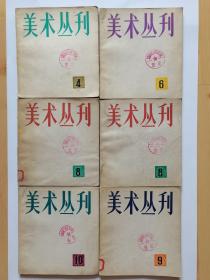 美术丛刊
4
美术丛刊
6
美术丛刊
8
美术丛刊
8
美术丛刊
10
美术丛刊
9